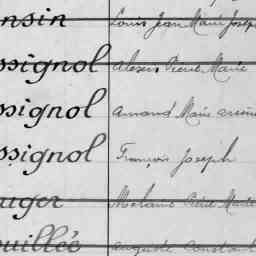 nsin Louis Jean Marie Joseph
ssignol Alexis Pierre Marie
ssignol Armand Marie
ssignol François Joseph
uger Pierre Marie
ouillée Auguste Constant